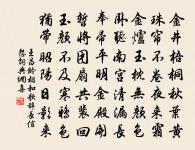 金井梧桐秋葉黃
珠帘不卷夜來霜
金爐玉枕無顏色
臥聽南宮清漏長
奉帚平明金殿開
暫將團扇共裴回
玉顏不及寒鴉色
猶帶昭陽日影來
王昌齡相和歌辭長信
怨詞典網集